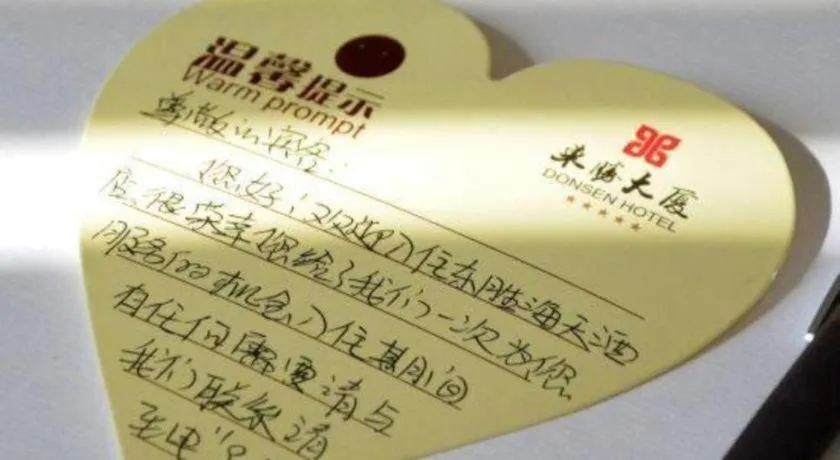 温馨提示
Warm prompt
东勝大厦
DONSEN HOTEL
尊敬的宾客:
您好!欢迎入住东胜海天酒
店,很荣幸您给了我们一次为您
服务的机会,入住其期间
有任何需要请与
我们联系请
致电"8